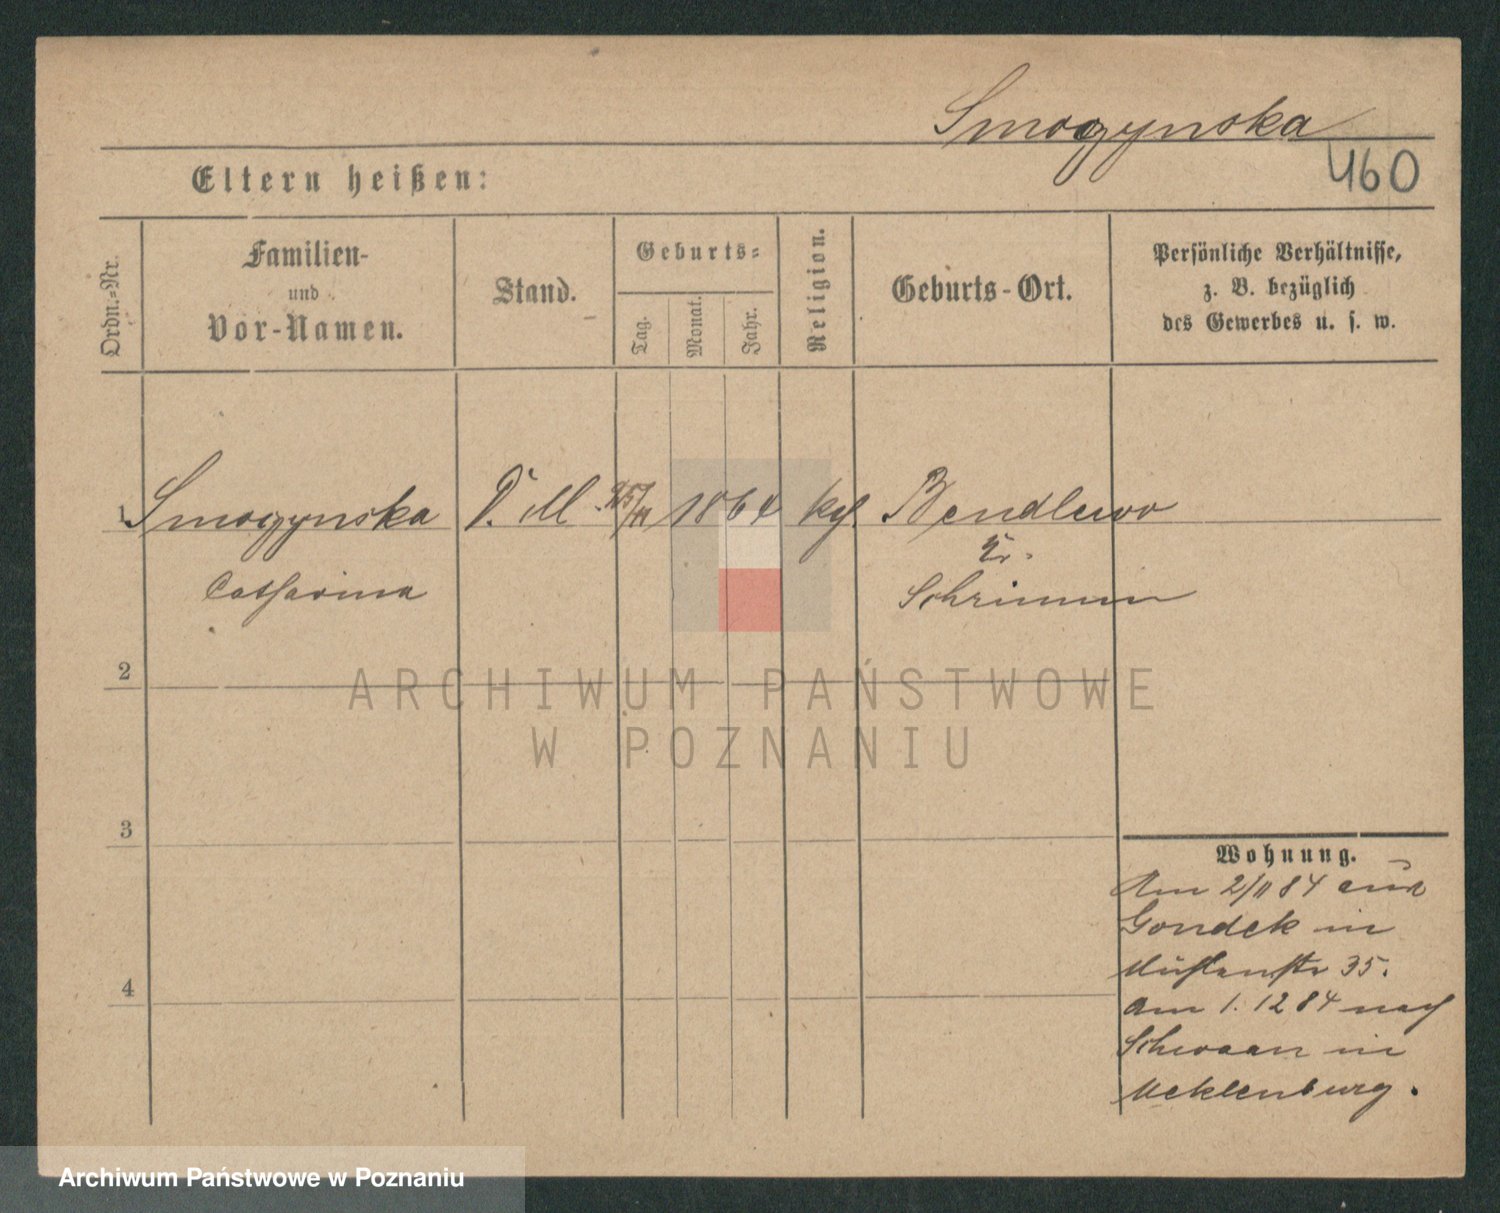 Smogynska
460
Eltern heißen:
Ordn.=Nr.
Familien-
und
Vor-Namen.
Stand.
Geburts=
Tag.
Monat.
Jahr.
Religion.
Geburts-Ort.
Persönliche Verhältnisse,
z. B. bezüglich
des Gewerbes u. s. w.
1 Smogynska D. M. 25/11 1864 kth. Bendlewo
Kr.
Catharina Schrimm
2
ARCHIWUM PAŃSTWOWE
W POZNANIU
3
Wohnung.
Am 2/11 84 aus
Gondek in
Mühlenstr 35.
4
am 1. 12 84 nach
Schwaan in
Meklenburg.
Archiwum Państwowe w Poznaniu